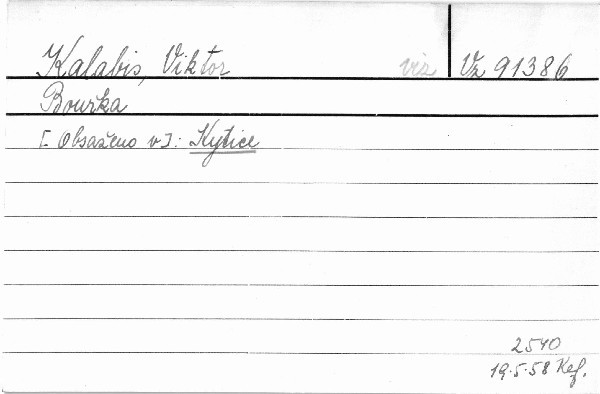 Kalabis, Viktor viz Vz 91386
Bouřka
[Obsaženo v]: Kytice
2540
19.5.58 Kef.